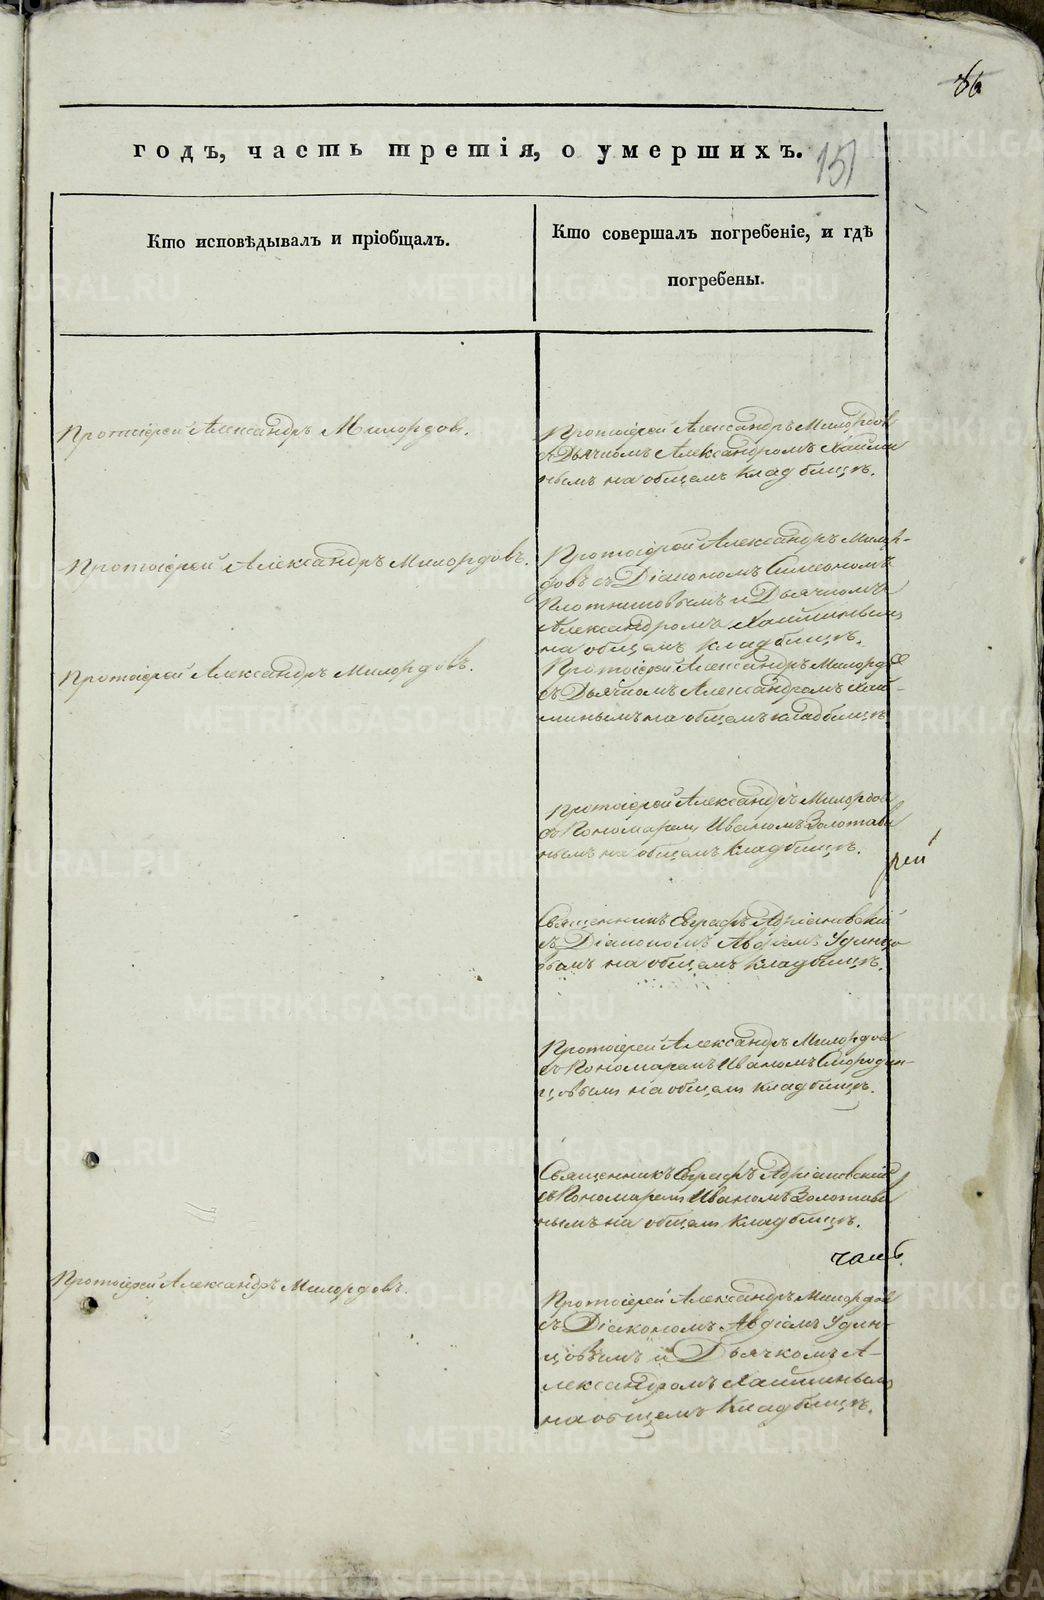 годъ, часть третія, о умершихъ.
151
Кто исповѣдывалъ и пріобщалъ.
Кто совершалъ погребеніе, и гдѣ
погребены.
Протоіерей Александръ Милордовъ.
Протоіерей Александръ Милордовъ
съ Дьячкомъ Александромъ
нымъ на общемъ кладбищѣ.
Протоіерей Александръ Милордовъ.
Протоіерей Александръ Милор-
довъ съ Діакономъ Симеономъ
Плотниковымъ и Дьячкомъ
Александромъ
на общемъ кладбищѣ.
Протоіерей Александръ Милордовъ.
Протоіерей Александръ Милордов
съ Дьячкомъ Александромъ
минымъ на общемъ кладбищѣ.
Протоіерей Александръ Милордовъ
съ Пономарем Иваномъ Золотави
нымъ на общемъ кладбищѣ.
Священникъ Евграфъ Адріановскій
съ Діакономъ Авдіемъ Удинцо
вымъ на общемъ кладбищѣ.
Протоіерей Александръ Милордовъ
съ Пономаремъ Иваномъ Смородин-
цовым на общем кладбищѣ.
Священникъ Евграфъ Адріановскій
съ Пономарем Иваномъ Золотави
нымъ на общем кладбищѣ.
Протоіерей Александръ Милордовъ.
Протоіерей Александръ Милордов
съ Діакономъ Авдіемъ Удин-
цовымъ и Дьячкомъ А-
лександромъ
на общемъ кладбищѣ.
METRIKI.GASO-URAL.RU